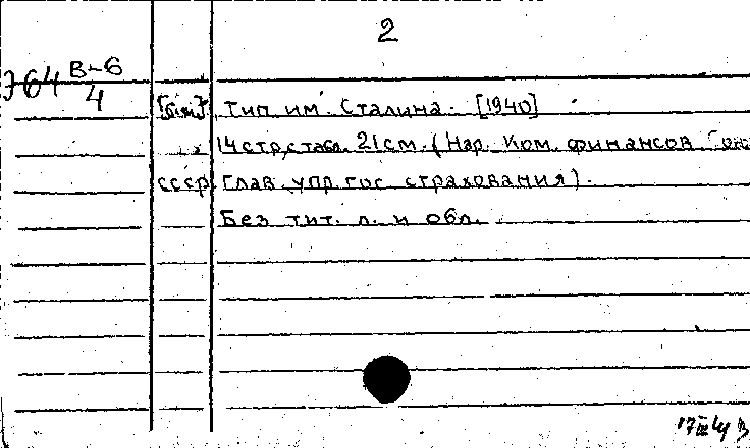 2
В-6
764
4
Тип им. Сталина. [1940]
14 стр. с табл. 21 см. (Нар. Ком. финансов Союза
СССР. Глав. упр. гос. страхования).
Без тит. л. и обл.